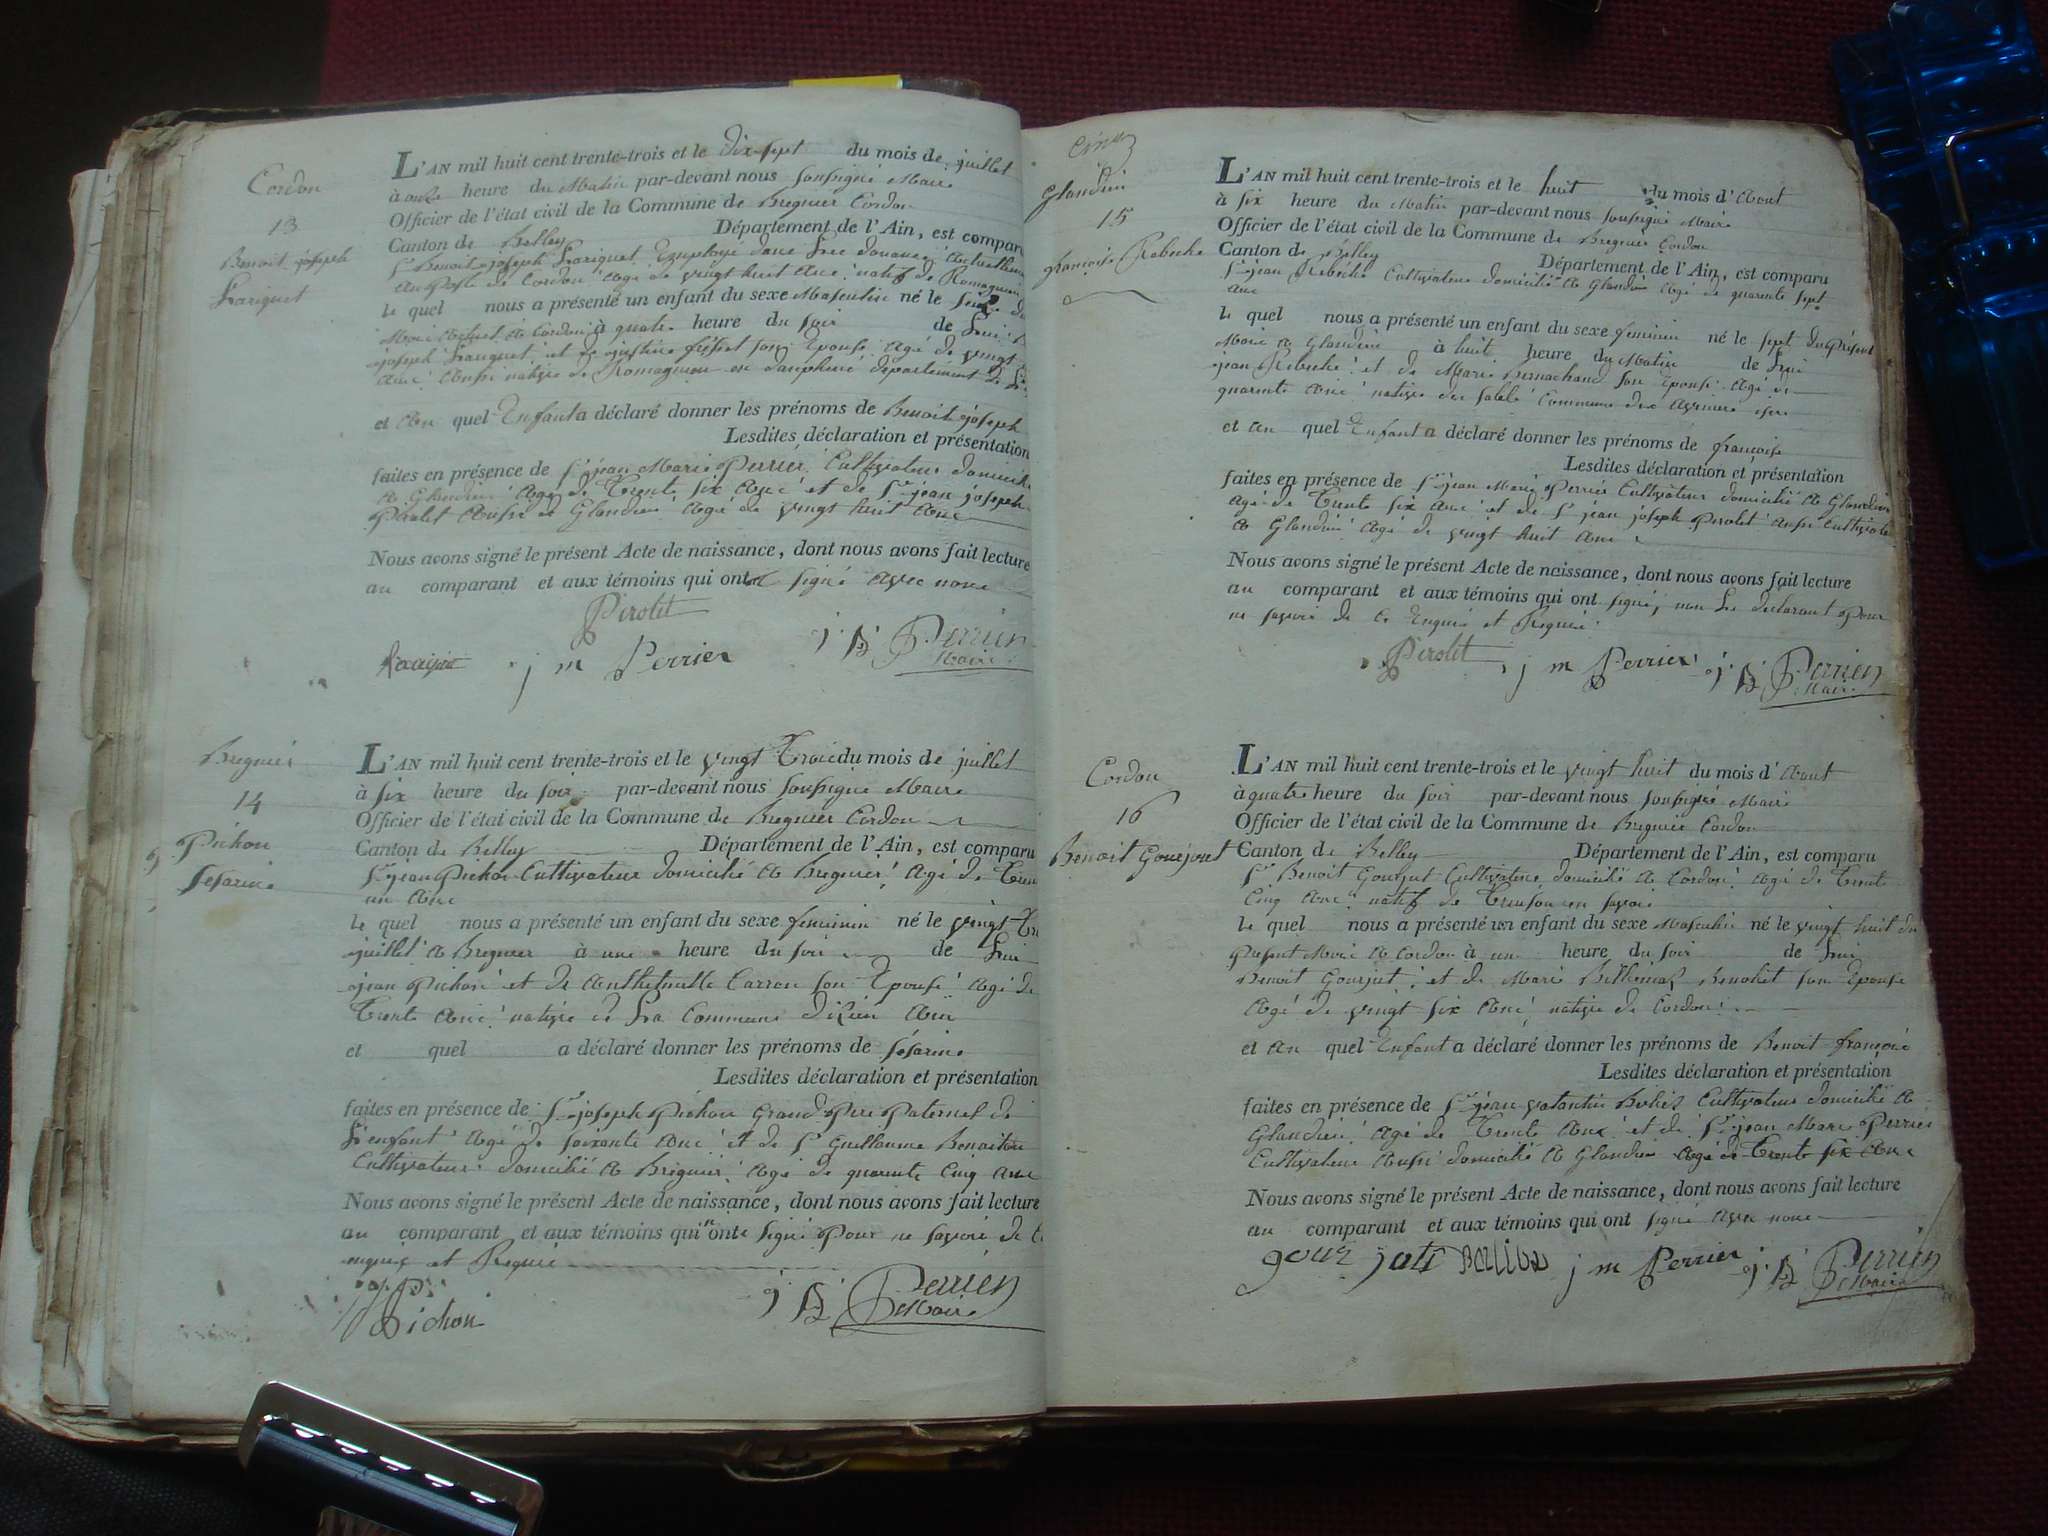 Cordon
13
Benoit joseph
Lariguet
L'AN mil huit cent trente-trois et le dix-sept du mois de juillet
à onze heure du Matin par-devant nous soussigné Maire
Officier de l'état civil de la Commune de Bregnier Cordon
Canton de Belley Département de l'Ain, est comparu
Sr Benoit joseph Lariguet Employé dans Les douanes
au Poste de Cordon agé de vingt huit ans natif de Romagnieu
le quel nous a présenté un enfant du sexe Masculin né le seize du
Mois à Cordon à quatre heure du soir de Lui
joseph Lariguet et de justine son Epouse agé de vingt
ans aussi native de Romagnieu en dauphiné departement de
et au quel Enfant a déclaré donner les prénoms de Benoit joseph
Lesdites déclaration et présentation
faites en présence de Sr jean Marie Perrier Cultivateur domicilié
à Glandieu agé de Trente six ans et de Sr jean joseph
Pirolet aussi à Glandieu agé de vingt huit ans
Nous avons signé le présent Acte de naissance, dont nous avons fait lecture
au comparant et aux témoins qui ont signé avec nous
Pirolet
j m Perrier j. B. Perrier
Maire
Bregnier
14
Pichon
Sesarine
L'AN mil huit cent trente-trois et le vingt Trois du mois de juillet
à six heure du soir par-devant nous soussigné Maire
Officier de l'état civil de la Commune de Bregnier Cordon
Canton de Belley Département de l'Ain, est comparu
Sr jean Pichon Cultivateur domicilié à Bregnier agé de Trente
un ans
le quel nous a présenté un enfant du sexe feminin né le vingt
juillet à Bregnier à une heure du soir de Lui
jean Pichon et de Carron son Epouse agé de
Trente ans native de La Commune Ain
et quel a déclaré donner les prénoms de Sesarine
Lesdites déclaration et présentation
faites en présence de Sr joseph Pichon Grand Pere Paternel de
L'enfant agé de soixante ans et de Sr Guillaume
Cultivateur domicilié à Bregnier agé de quarente Cinq ans
Nous avons signé le présent Acte de naissance, dont nous avons fait lecture
au comparant et aux témoins qui n'ont signé Pour ne savoir de Ce
enquis et Requis
Pichon
j. B. Perrier
Maire
Glandieu
15
françoise Rebeche
L'AN mil huit cent trente-trois et le huit du mois d'Aout
à six heure du Matin par-devant nous soussigné Maire
Officier de l'état civil de la Commune de Bregnier Cordon
Canton de Belley Département de l'Ain, est comparu
Sr jean Rebeche Cultivateur domicilié à Glandieu agé de quarente sept
ans
le quel nous a présenté un enfant du sexe feminin né le sept du présent
Mois à Glandieu à huit heure du Matin de Lui
jean Rebeche et de Marie son Epouse agé de
quarente ans native Commune des Avenieres
et au quel Enfant a déclaré donner les prénoms de françoise
Lesdites déclaration et présentation
faites en présence de Sr jean Marie Perrier Cultivateur domicilié à Glandieu
agé de Trente six ans et de Sr jean joseph Pirolet aussi Cultivateur
à Glandieu agé de vingt huit ans
Nous avons signé le présent Acte de naissance, dont nous avons fait lecture
au comparant et aux témoins qui ont signé, non Le declarant Pour
ne savoir de Ce Enquis et Requis
Pirolet j m Perrier j. B. Perrier
Maire
Cordon
16
Benoit Gourjout
L'AN mil huit cent trente-trois et le vingt huit du mois d'Aout
à quatre heure du soir par-devant nous soussigné Maire
Officier de l'état civil de la Commune de Bregnier Cordon
Canton de Belley Département de l'Ain, est comparu
Sr Benoit Gourjut Cultivateur domicilié à Cordon agé de Trente
Cinq ans natif de en savoie
le quel nous a présenté un enfant du sexe Masculin né le vingt huit du
présent Mois à Cordon à une heure du soir de Lui
Benoit Gourjut et de Marie Benohet son Epouse
agé de vingt six ans native de Cordon
et au quel Enfant a déclaré donner les prénoms de Benoit françois
Lesdites déclaration et présentation
faites en présence de Sr jean valantin Cultivateur domicilié à
Glandieu agé de Trente ans et de Sr jean Marie Perrier
Cultivateur aussi domicilié à Glandieu agé de Trente six ans
Nous avons signé le présent Acte de naissance, dont nous avons fait lecture
au comparant et aux témoins qui ont signé avec nous
j m Perrier j. B. Perrier
Maire